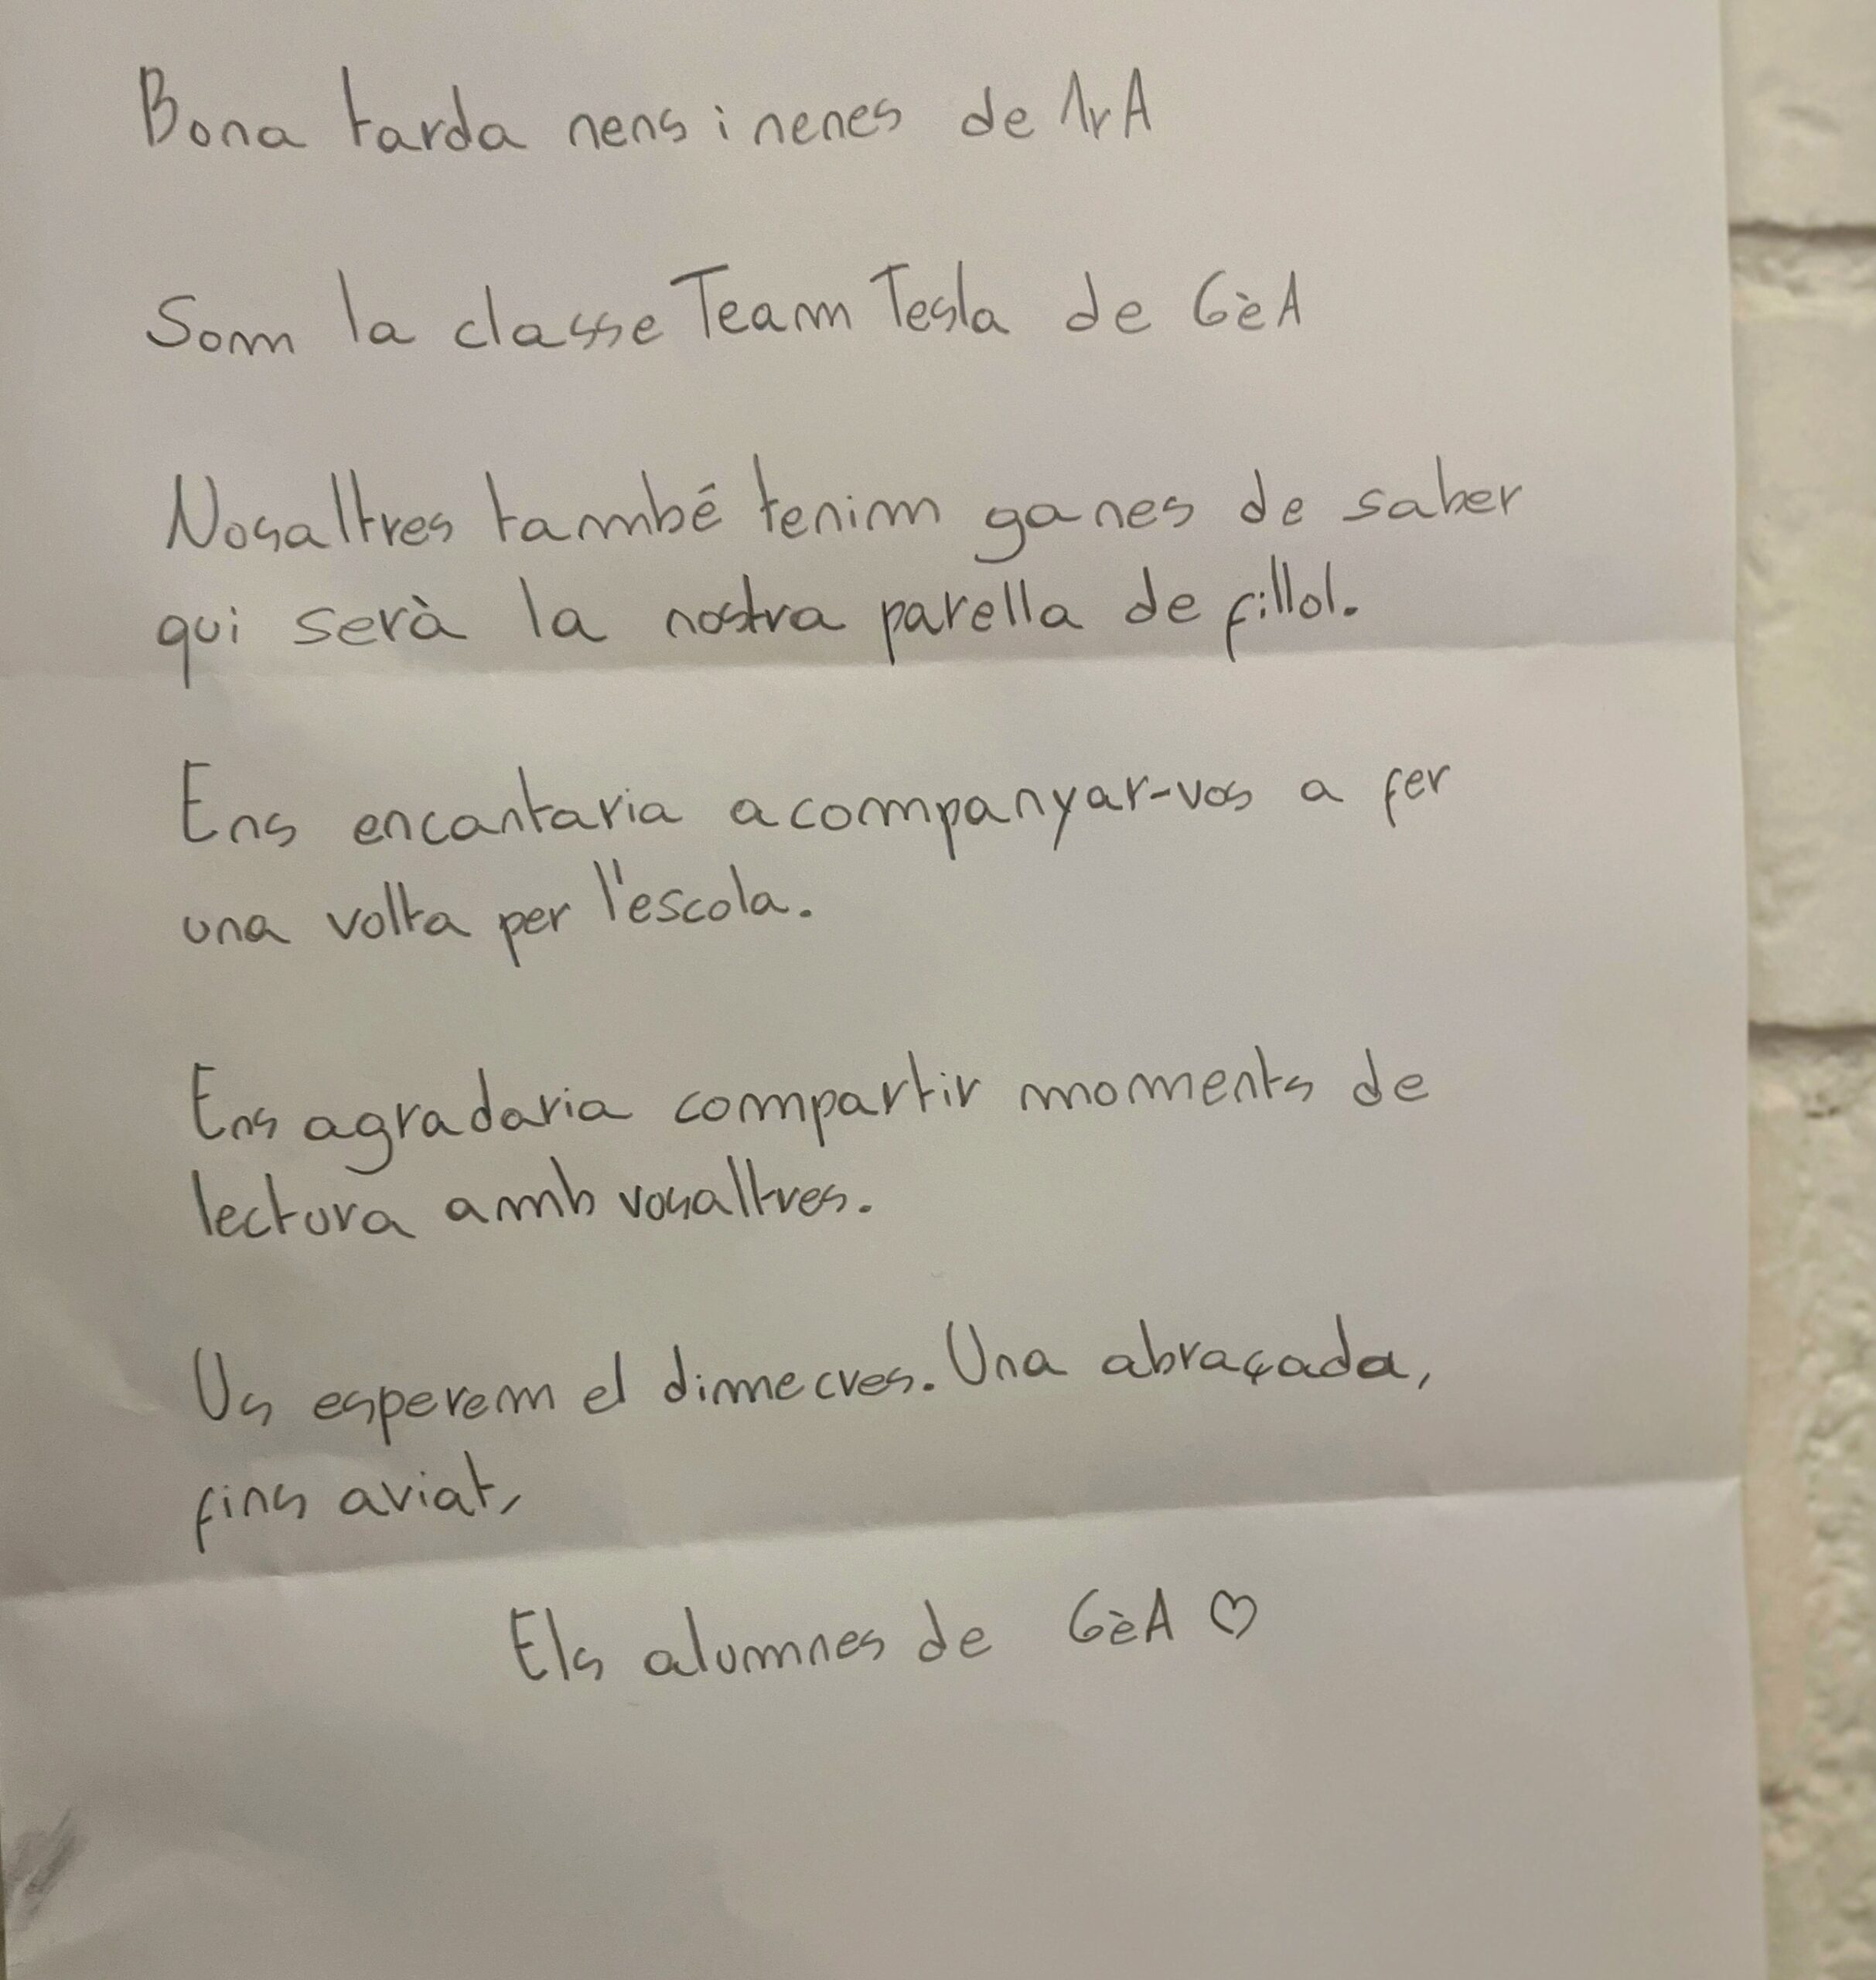 Bona tarda nens i nenes de 1r A
Som la classe Team Tesla de 6è A
Nosaltres també tenim ganes de saber
qui serà la nostra parella de fillol.
Ens encantaria acompanyar-vos a fer
una volta per l'escola.
Ens agradaria compartir moments de
lectura amb vosaltres.
Us esperem el dimecres. Una abraçada,
fins aviat,
Els alumnes de 6è A ♡